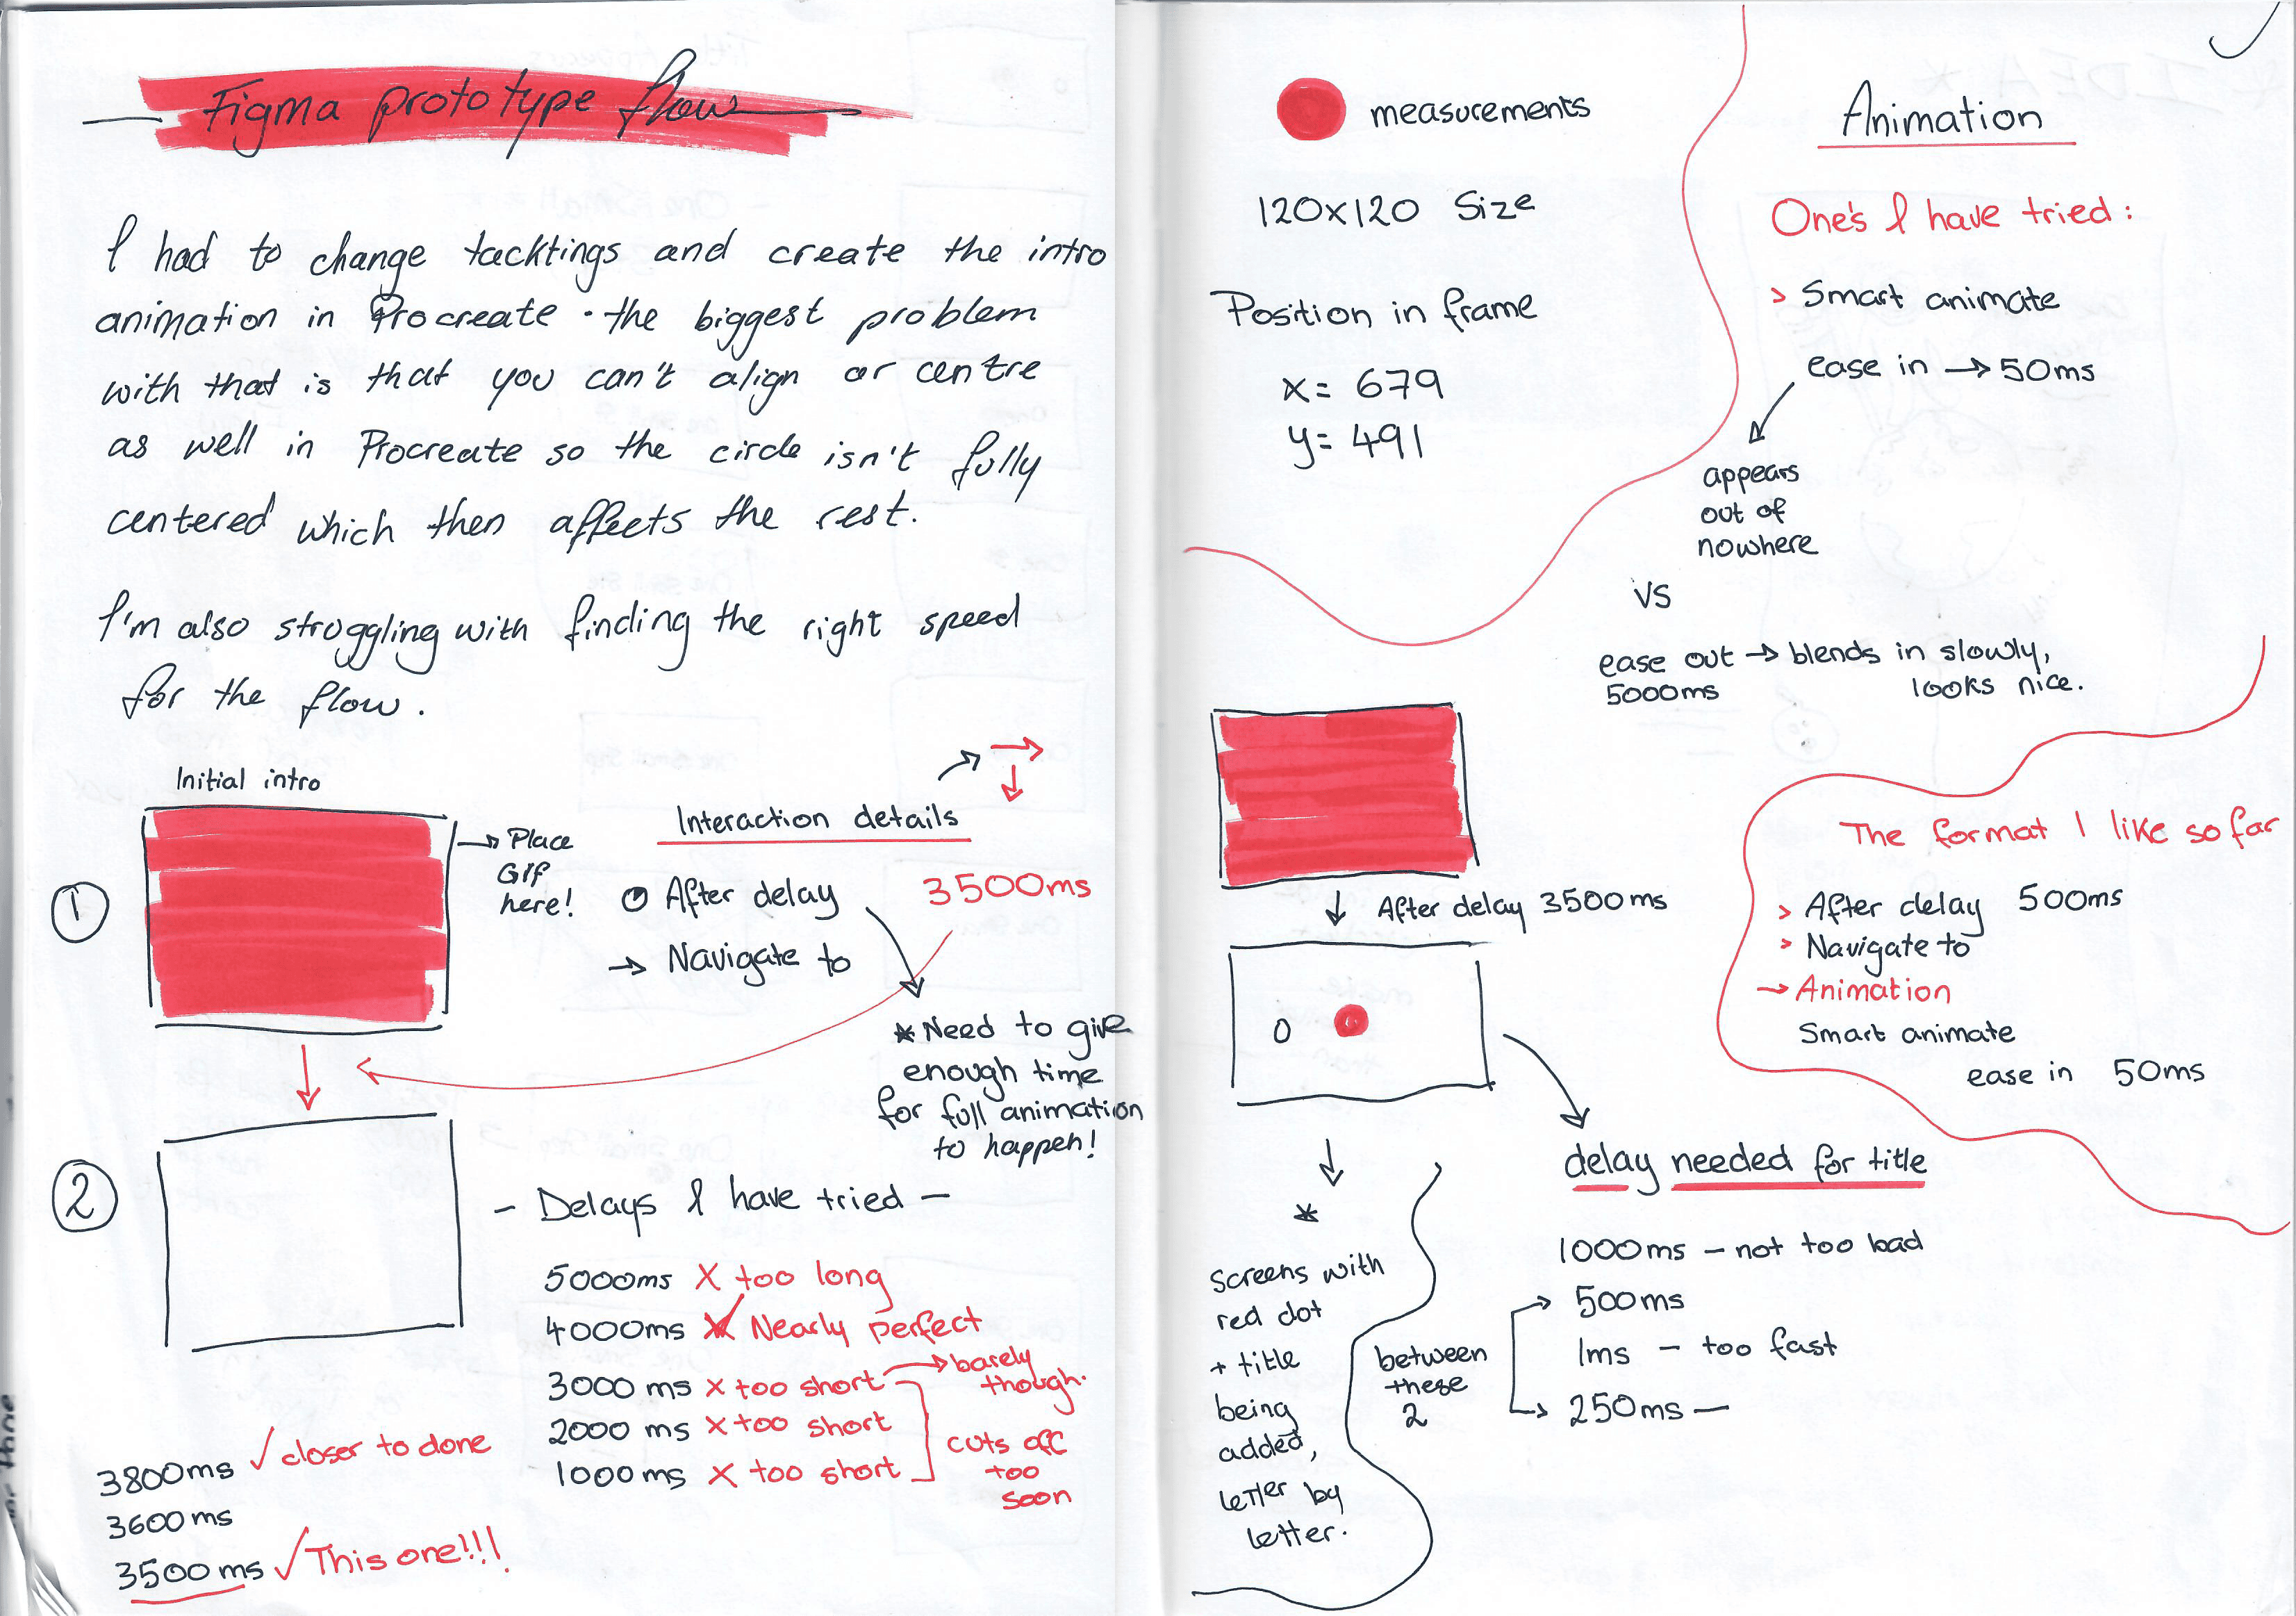 Figma prototype flow
I had to change tacktings and create the intro
animation in Procreate. the biggest problem
with that is that you can't align or centre
as well in Procreate so the circle isn't fully
centered which then affects the rest.
I'm also struggling with finding the right speed
for the flow.
Initial intro
→ Place
Gif
here!
①
Interaction details
After delay
3500ms
→ Navigate to
* Need to give
enough time
for full animation
to happen!
②
- Delays I have tried -
5000ms X too long
4000ms X Nearly perfect
3000 ms X too short → barely
though.
2000 ms X too short
1000 ms X too short
cuts off
too
soon
3800ms ✓ closer to done
3600ms
3500 ms ✓ This one!!!
measurements
120x120 Size
Position in frame
x= 679
y= 491
Animation
One's I have tried:
> Smart animate
ease in → 50ms
appears
out of
nowhere
VS
ease out → blends in slowly,
5000ms looks nice.
↓ After delay 3500ms
O
↓
*
screens with
red dot
+ title
being
added,
letter by
letter.
The format I like so far
> After delay 500ms
> Navigate to
→ Animation
Smart animate
ease in 50ms
delay needed for title
1000ms - not too bad
500ms
1ms - too fast
250ms -
between
these
2